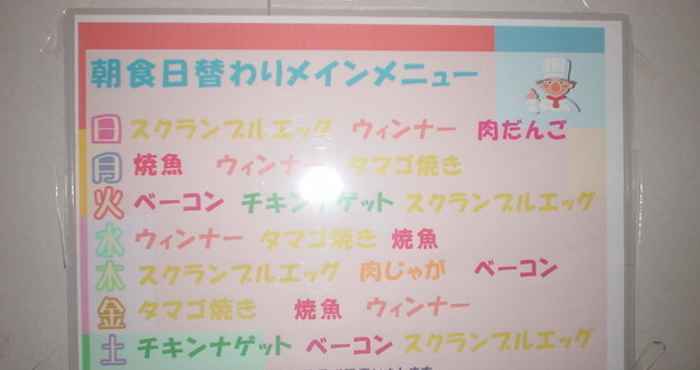 朝食日替わりメインメニュー
日 スクランブルエッグ ウィンナー 肉だんご
月 焼魚 ウィンナー タマゴ焼き
火 ベーコン チキンナゲット スクランブルエッグ
水 ウィンナー タマゴ焼き 焼魚
木 スクランブルエッグ 肉じゃが ベーコン
金 タマゴ焼き 焼魚 ウィンナー
土 チキンナゲット ベーコン スクランブルエッグ